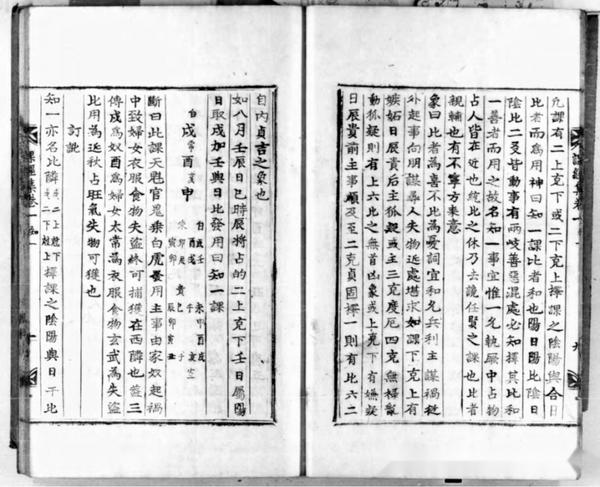 凢課有二上克下或二下克上擇課之陰陽與今日
比者而爲用神曰知一課比者和也陽日陽比陰日
陰比二爻皆動事有兩岐善惡混處必知擇其比和
一善者而用之故名知一事宜惟一允執厥中占物
占人皆在近也統比之休乃去讒任賢之課也比者
親輔也有不寧方來意
象曰比者爲喜不比爲憂詞宜和允兵利主謀禍從
外起事向朋謀尋人失物近處堪求如課下克上有
嫉妬日辰貴后主狐
動狐疑則有上六比之無首凶象或上克下有嫌疑
日辰貴前主事順及正二克貞固擇一則有比六二
自內貞吉之象也
如八月壬辰日巳時辰將占的二上克下壬日屬陽
日取戌加壬與日比發用曰知一課
白 戌 常 酉 玄 申
斷曰此課天魁官鬼乗白虎發用主事由家奴起禍
中致婦女衣服食物失盜終可捕獲在西隣也葢三
傳戌爲奴酉爲婦女太常爲衣服食物玄武爲失盜
比用爲近秋占旺氣失物可獲也
訂訛
知一亦名比隣 擇課之陰陽與日干比